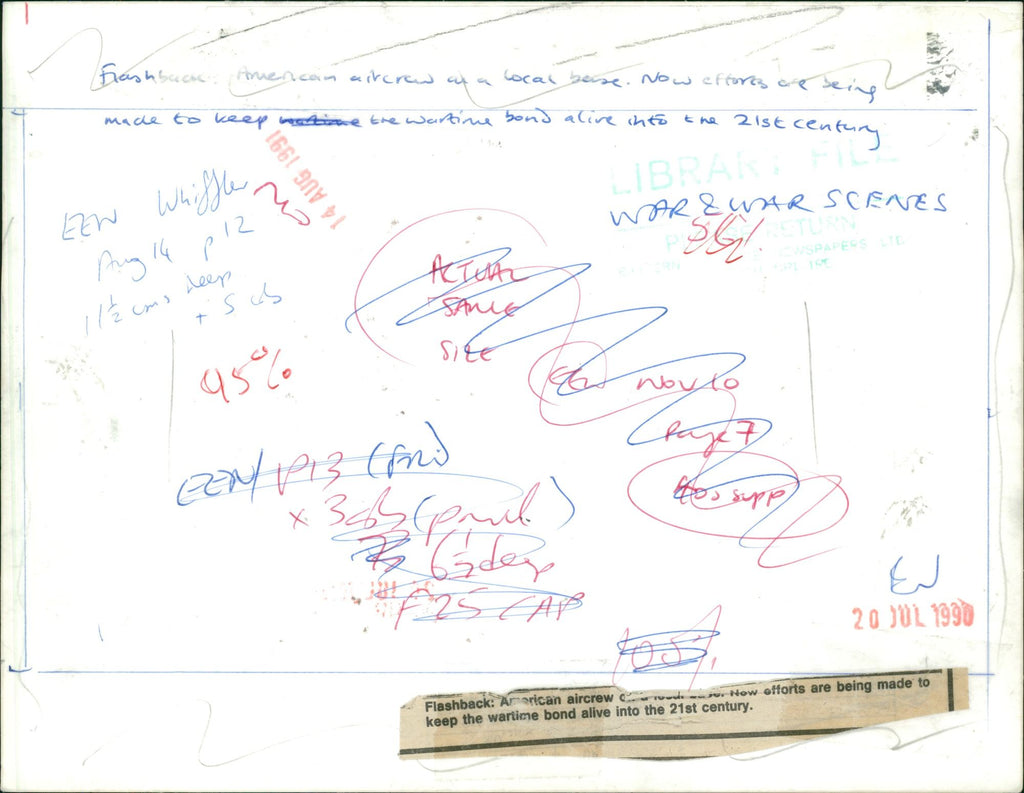 Flashback: American aircrew at a local base. Now efforts are being
made to keep the wartime bond alive into the 21st century
14 AUG 1991
LIBRARY FILE
WAR & WAR SCENES
RETURN
NEWSPAPERS LTD
EEN Whiffler
Aug 14 p 12
11½ cms deep
+ 5 cls
ACTUAL
SAME
SIZE
95%
EEN NOV 10
Page 7
supp
EEN/ P13 (Fri)
x 3
deep
F25 CAP
EN
20 JUL 1990
105%
Flashback: American aircrew Now efforts are being made to
keep the wartime bond alive into the 21st century.